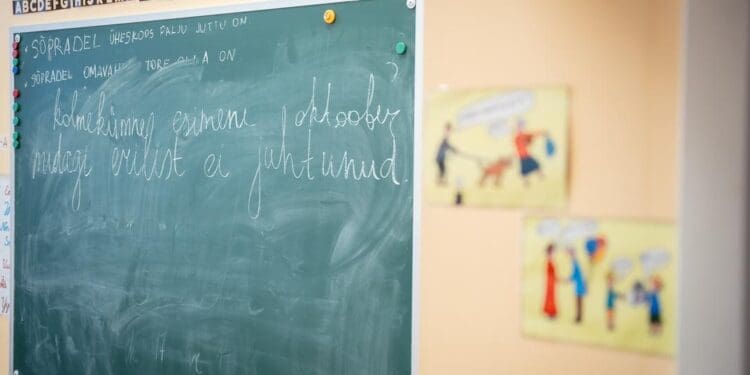 ABCDEFGHIJK
SÕPRADEL ÜHESKOOS PALJU JUTTU ON.
SÕPRADEL OMAVAHEL TORE OLLA ON
kolmekümne esimene oktoober
midagi erilist ei juhtunud.